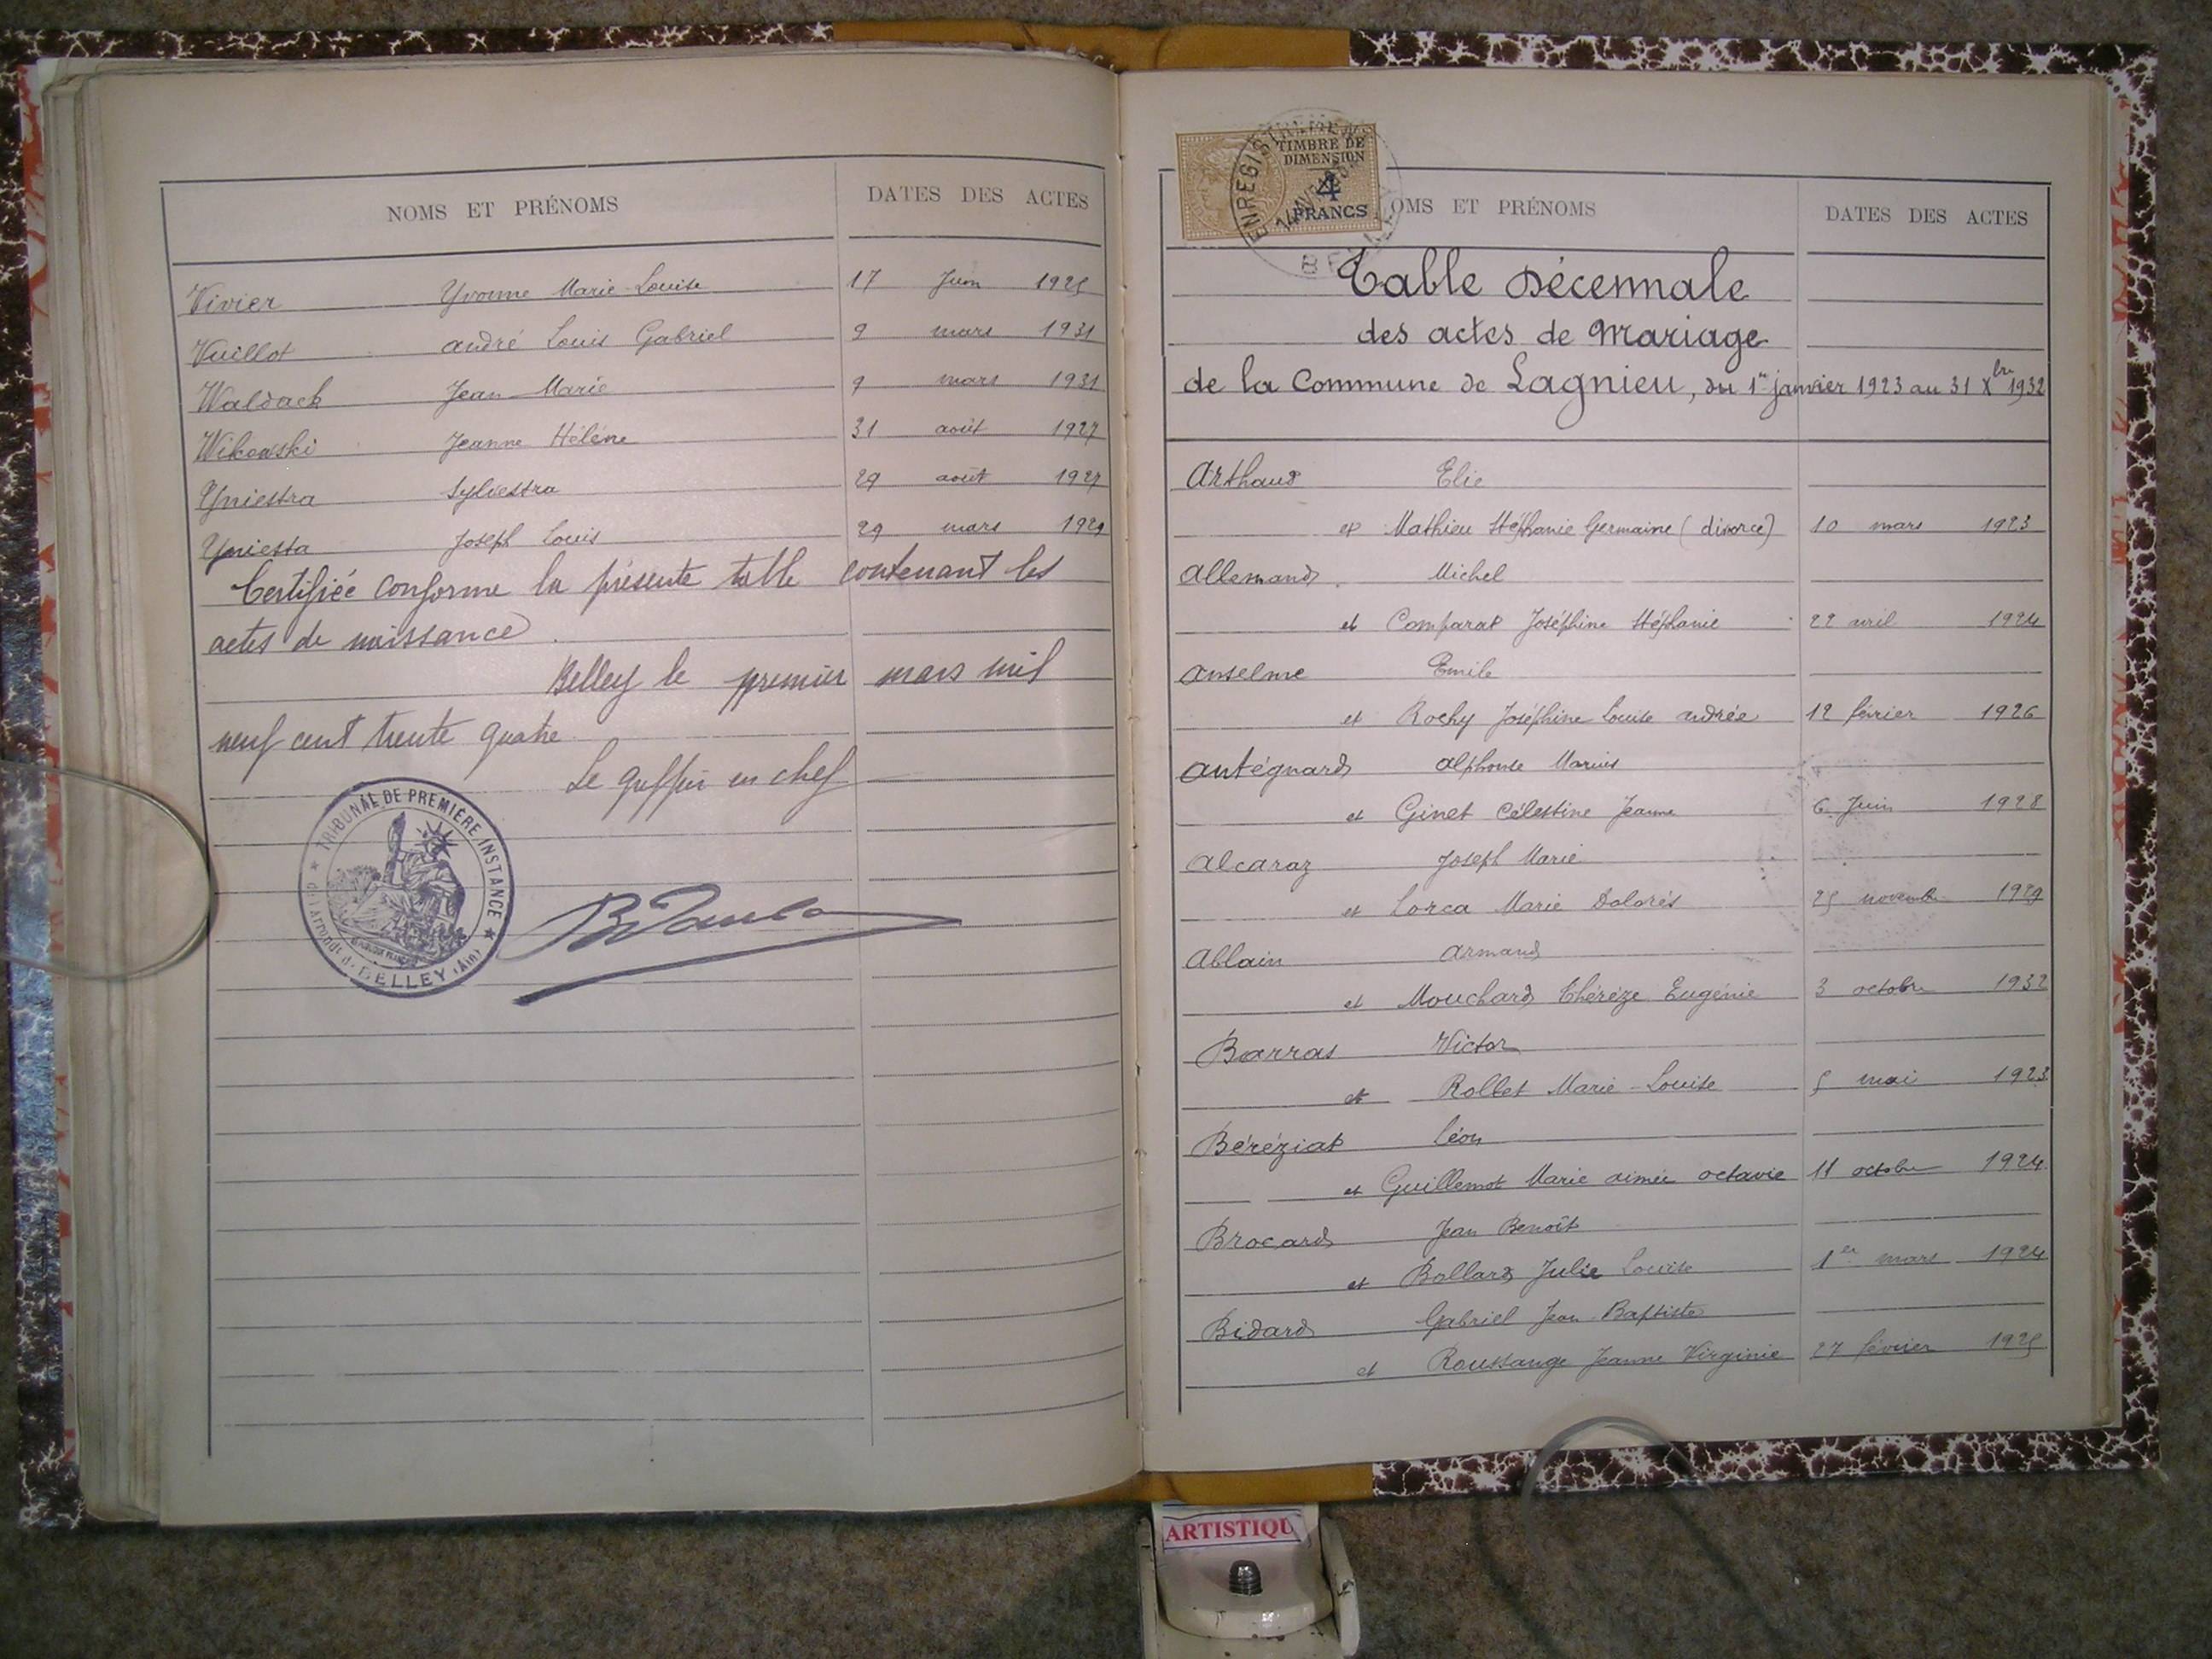 NOMS ET PRÉNOMS DATES DES ACTES
Vivier Yvonne Marie-Louise 17 Juin 1925
Vuillot andré Louis Gabriel 9 mars 1931
Waldack Jean-Marie 9 mars 1931
Wikowski Jeanne Hélène 31 août 1927
Yniestra Sylvestra 29 août 1927
Yniesta Joseph Louis 29 mars 1929
Certifiée conforme la présente table contenant les
actes de naissance.
Belley le premier mars mil
neuf cent trente quatre
Le greffier en chef
TRIBUNAL DE PREMIÈRE INSTANCE
de l'Arrondt de BELLEY (Ain)
ENREGISTREMENT
TIMBRE DE
DIMENSION
4
FRANCS
OMS ET PRÉNOMS DATES DES ACTES
Table Décennale
des actes de Mariage
de la Commune de Lagnieu, du 1er janvier 1923 au 31 Xbre 1932
Arthaud Elie
et Mathieu Stéphanie Germaine (divorce) 10 mars 1923
Allemand Michel
et Comparat Joséphine Stéphanie 22 avril 1924
Anselme Emile
et Rochy Joséphine Louise andrée 12 février 1926
Antégnard Alphonse Marius
et Ginet Célestine Jeanne 6 Juin 1928
Alcaraz Joseph Marie
et Lorca Marie Dolorès 25 novembre 1929
Ablain Armand
et Mouchard Thérèze Eugénie 3 octobre 1932
Barras Victor
et Rollet Marie-Louise 5 mai 1923
Béréziat Léon
et Guillemot Marie aimée octavie 11 octobre 1924
Brocard Jean Benoît
et Bollard Julie Louise 1er mars 1924
Bidard Gabriel Jean-Baptiste
et Roussange Jeanne Virginie 27 février 1925
ARTISTIQU